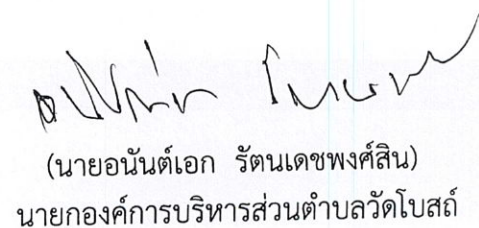 (นายอนันต์เอก รัตนเดชพงศ์สิน)
นายกองค์การบริหารส่วนตำบลวัดโบสถ์